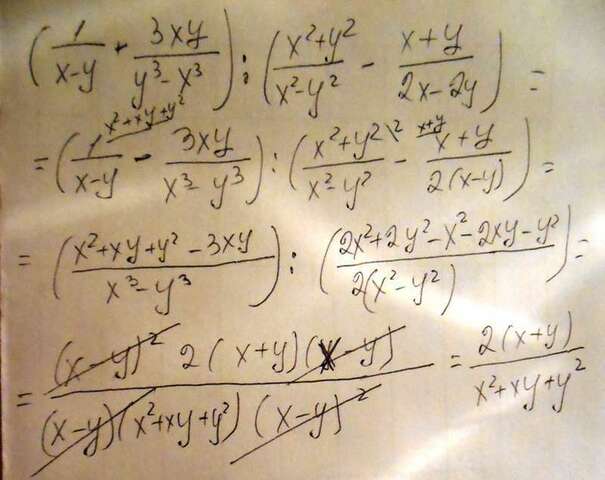 (1/(x-y) + 3xy/(y³-x³)) : ((x²+y²)/(x²-y²) - (x+y)/(2x-2y)) =
= (1/(x-y) \ x²+xy+y² - 3xy/(x³-y³)) : ((x²+y²)/(x²-y²) \ 2 - (x+y)/(2(x-y)) \ x+y) =
= ((x²+xy+y²-3xy)/(x³-y³)) : ((2x²+2y²-x²-2xy-y²)/(2(x²-y²))) =
= ((x-y)² 2(x+y)(x-y))/((x-y)(x²+xy+y²)(x-y)²) = 2(x+y)/(x²+xy+y²)